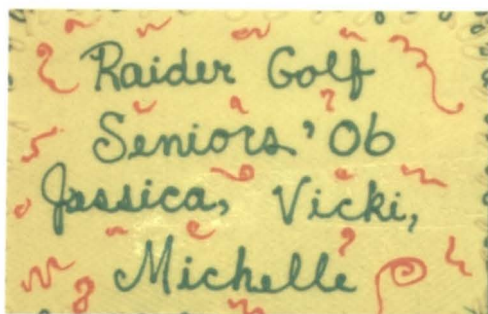 Raider Golf
Seniors '06
Jessica, Vicki,
Michelle